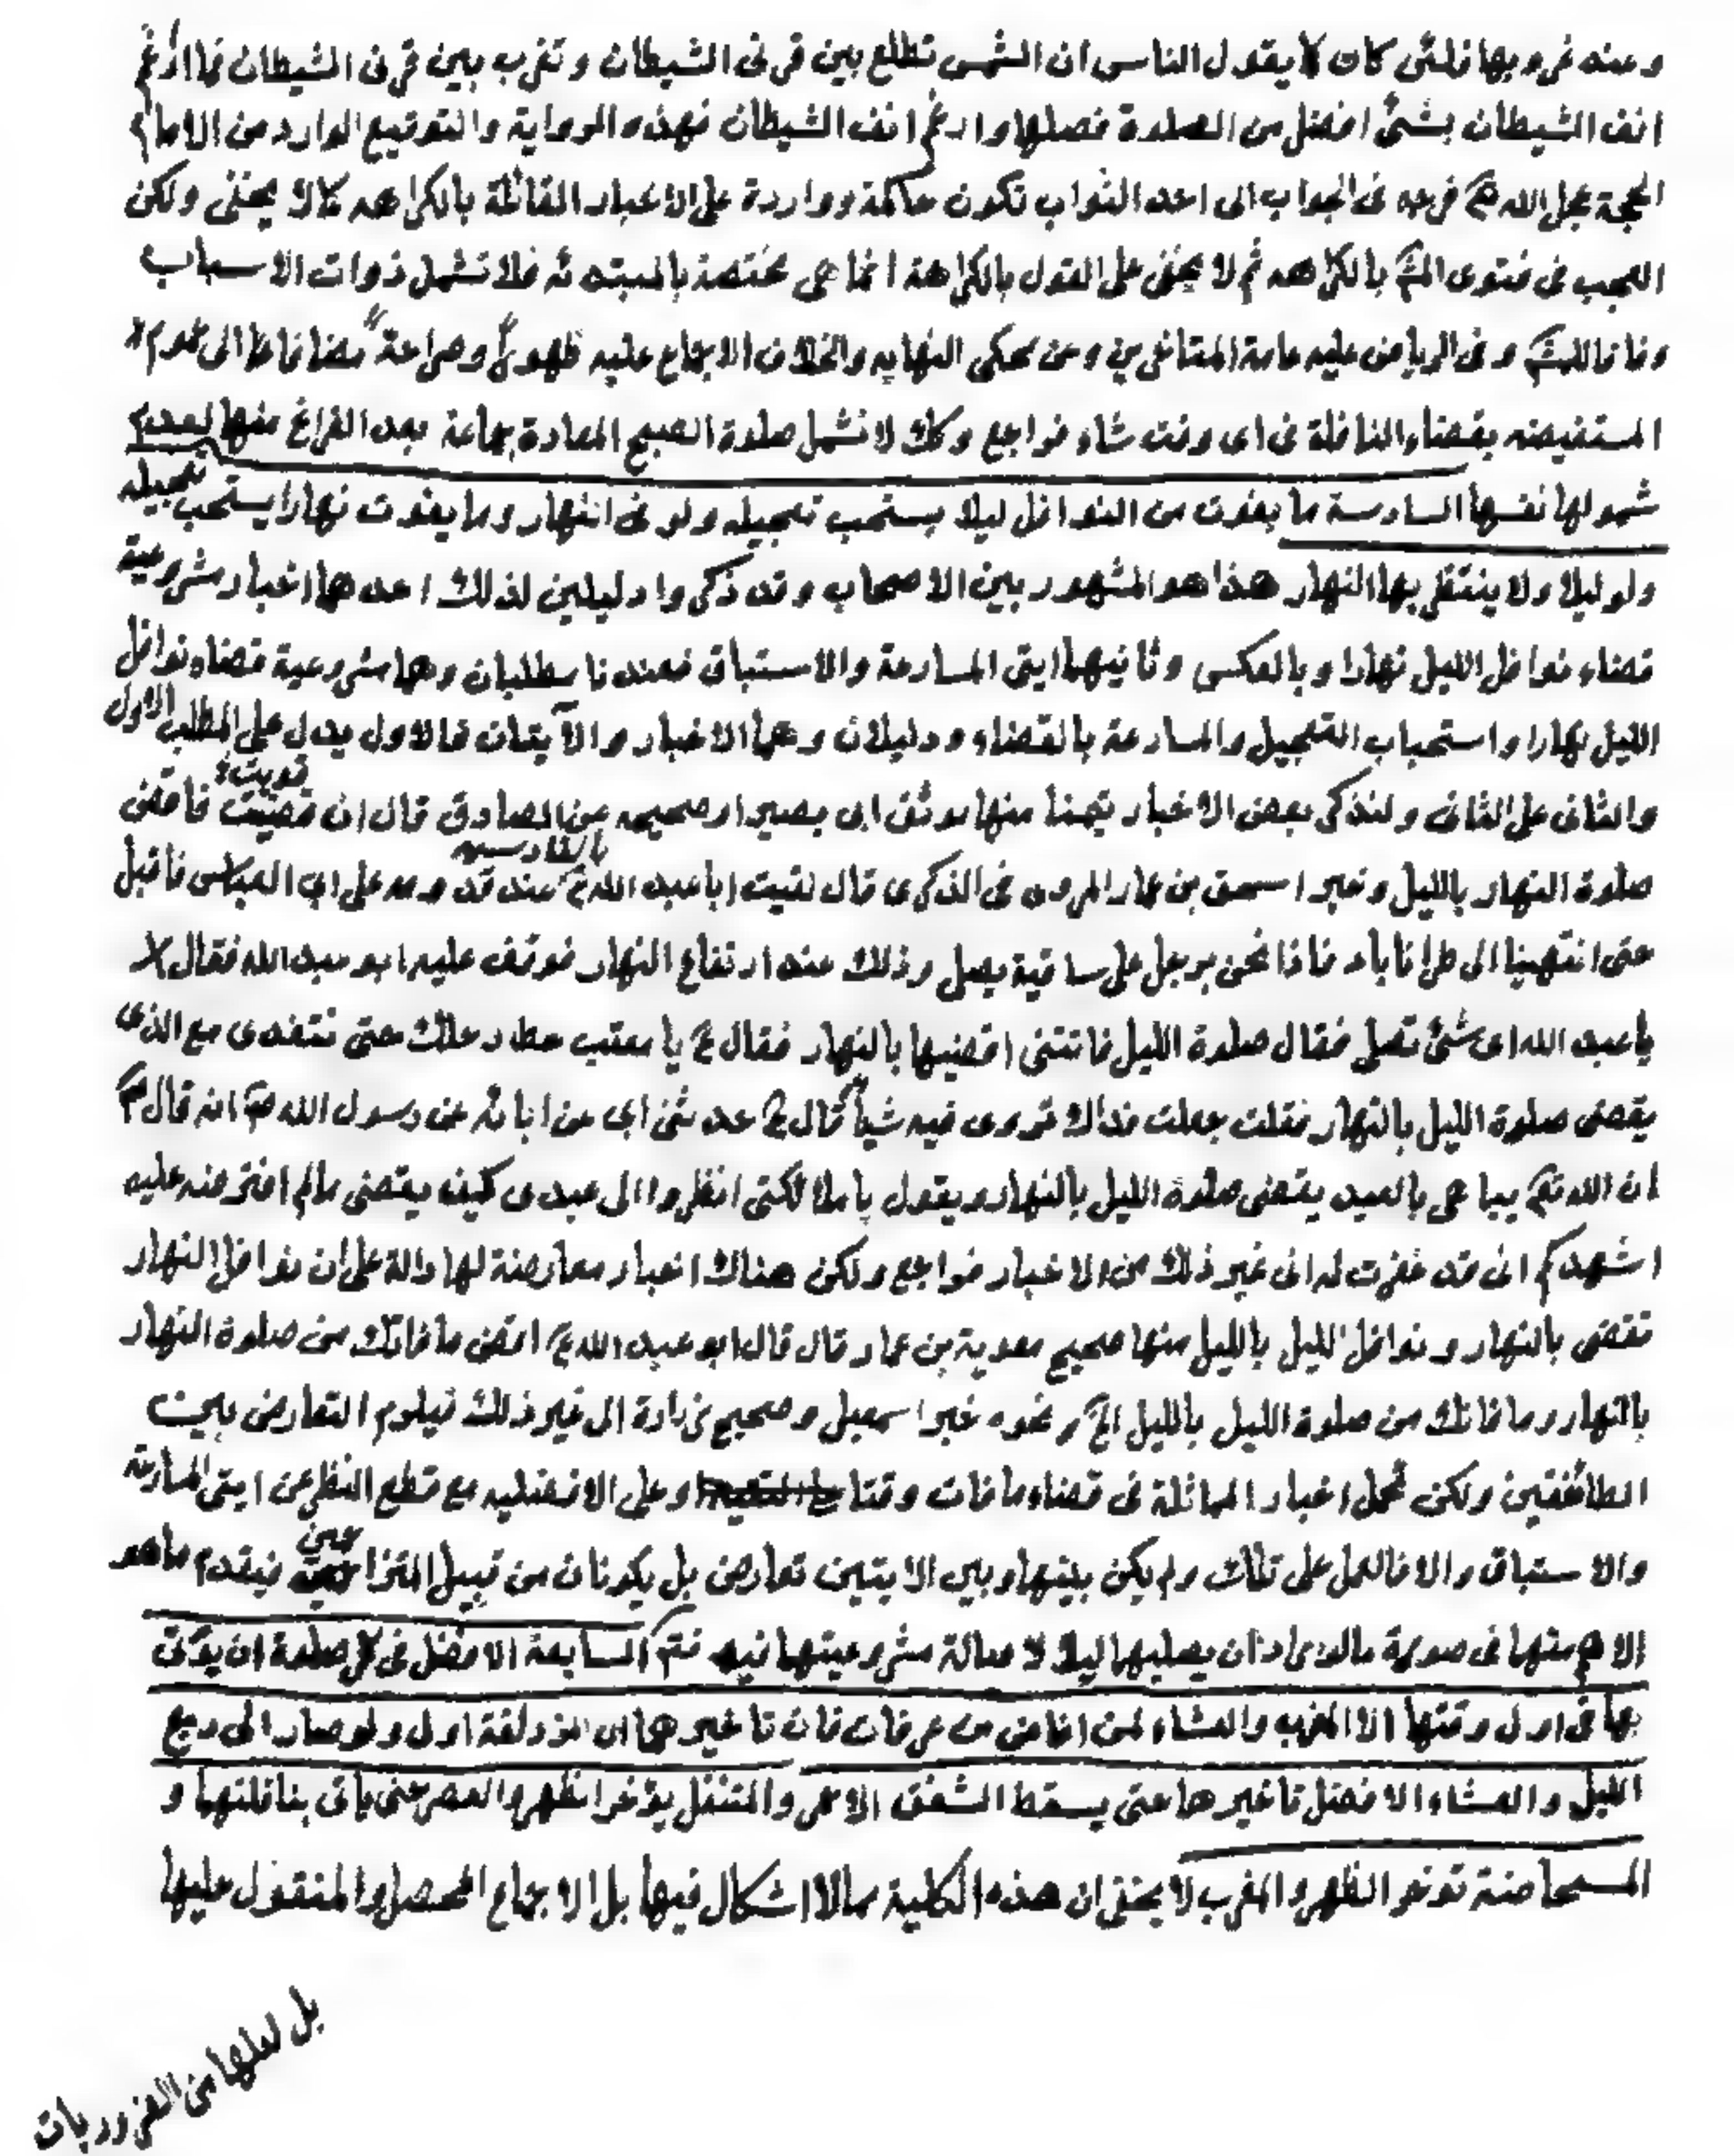 وعند غروبها فلئن كان كما يقول الناس ان الشمس تطلع بين قرنى الشيطان وتغرب بين قرنى الشيطان فما ارغم
انف الشيطان بشئ افضل من الصلوة فصلها وارغم انف الشيطان فهذه الرواية والتوقيع الوارد من الامام
الحجة عجل الله فرجه فى الجواب الى احد النواب تكون حاكمة وواردة على الاخبار القائلة بالكراهه كمالا يخفى ولكن
العجب فى فتوى المشـ بالكراهه ثم لا يخفى على القول بالكراهة انما هى مختصة بالمبتدئه فلا تشمل ذوات الاسباب
وفاقا للمشـ وفى الرياض عليه عامة المتاخرين وعن محكى النهايه والخلاف الاجماع عليه ظهورا وصراحة مضافا الى عموم
المستفيضه بقضاء النافلة فى اى وقت شاء فراجع وكك لا تشمل صلوة الصبح المعادة جماعة بعد الفراغ منها لعدم
شمولها نفسها السادسة ما يفوت من النوافل ليلا يستحب تعجيله ولو فى النهار وما يفوت نهارا يستحب تعجيله
ولو ليلا ولا ينتظر بها النهار هذا هو المشهور بين الاصحاب وقد ذكروا دليلين لذلك احدهما اخبار مشروعية
قضاء نوافل الليل نهارا وبالعكس وثانيهما ايتى المسارعة والاستباق فعندنا مطلبان وهما مشروعية قضاء نوافل
الليل نهارا واستحباب التعجيل والمسارعة بالقضاء ودليلان وهما الاخبار والآيتان فالاول يدل على المطلب الاول
والثانى على الثانى ولنذكر بعض الاخبار تيمنا منها موثق ابى بصير او صحيحه عن الصادق قال ان قويت فاقض
صلوة النهار بالليل وخبر اسحق بن عمار المروى فى الذكرى قال لقيت ابا عبد الله ع بالقادسيه عند قدومه على ابى العباس فاقبل
حتى انتهينا الى طرناباد فاذا نحن برجل على ساقية يصلى وذلك عند ارتفاع النهار فوقف عليه ابو عبد الله فقال
يا عبد الله اى شئ تصلى فقال صلوة الليل فاتتنى اقضيها بالنهار فقال ع يا معتب حط رحلك حتى نتغدى مع الذى
يقضى صلوة الليل بالنهار فقلت جعلت فداك تروى فيه شيأ قال ع حدثنى ابى عن ابائه عن رسول الله ص انه قال
ان الله تعـ يباهى بالعبد يقضى صلوة الليل بالنهار ويقول يا ملائكتى انظروا الى عبدى كيف يقضى مالم افترضه عليه
اشهدكم انى قد غفرت له الى غير ذلك من الاخبار فراجع ولكن هناك اخبار معارضة لها دالة على ان نوافل النهار
تقضى بالنهار ونوافل الليل بالليل منها صحيح معوية بن عمار قال قال ابو عبد الله ع اقض ما فاتك من صلوة النهار
بالنهار وما فاتك من صلوة الليل بالليل الخ ونحوه خبر اسمعيل وصحيح زرارة الى غير ذلك فيلوم التعارض بين
الطائفتين ولكن تحمل اخبار المماثلة فى قضاء ما فات وقتا او على الافضليه مع قطع النظر عن ايتى المسارعة
والاستباق والا فالعمل على تلك ولم يكن بينها وبين الايتين تعارض بل يكونان من قبيل المتزاحمين فيقدم ما هو
الاهم منها فى صورة مالو اراد ان يصليها ليلا لا صالة مشروعيتها فيه فتم السابعة الافضل فى كل صلوة ان يؤتى
بها فى اول وقتها الا المغرب والعشاء لمن افاض من عرفات فان تاخيرهما الى المزدلفة اولى ولو صار الى ربع
الليل والعشاء الافضل تاخيرها حتى يسقط الشفق الاحمر والمتنفل يؤخر الظهر والعصر حتى ياتى بنافلتهما و
المستحاضة تؤخر الظهر والمغرب لا يخفى ان هذه الكلية مما لا اشكال فيها بل الاجماع المحصل والمنقول عليها
بل لعلها من الضروريات